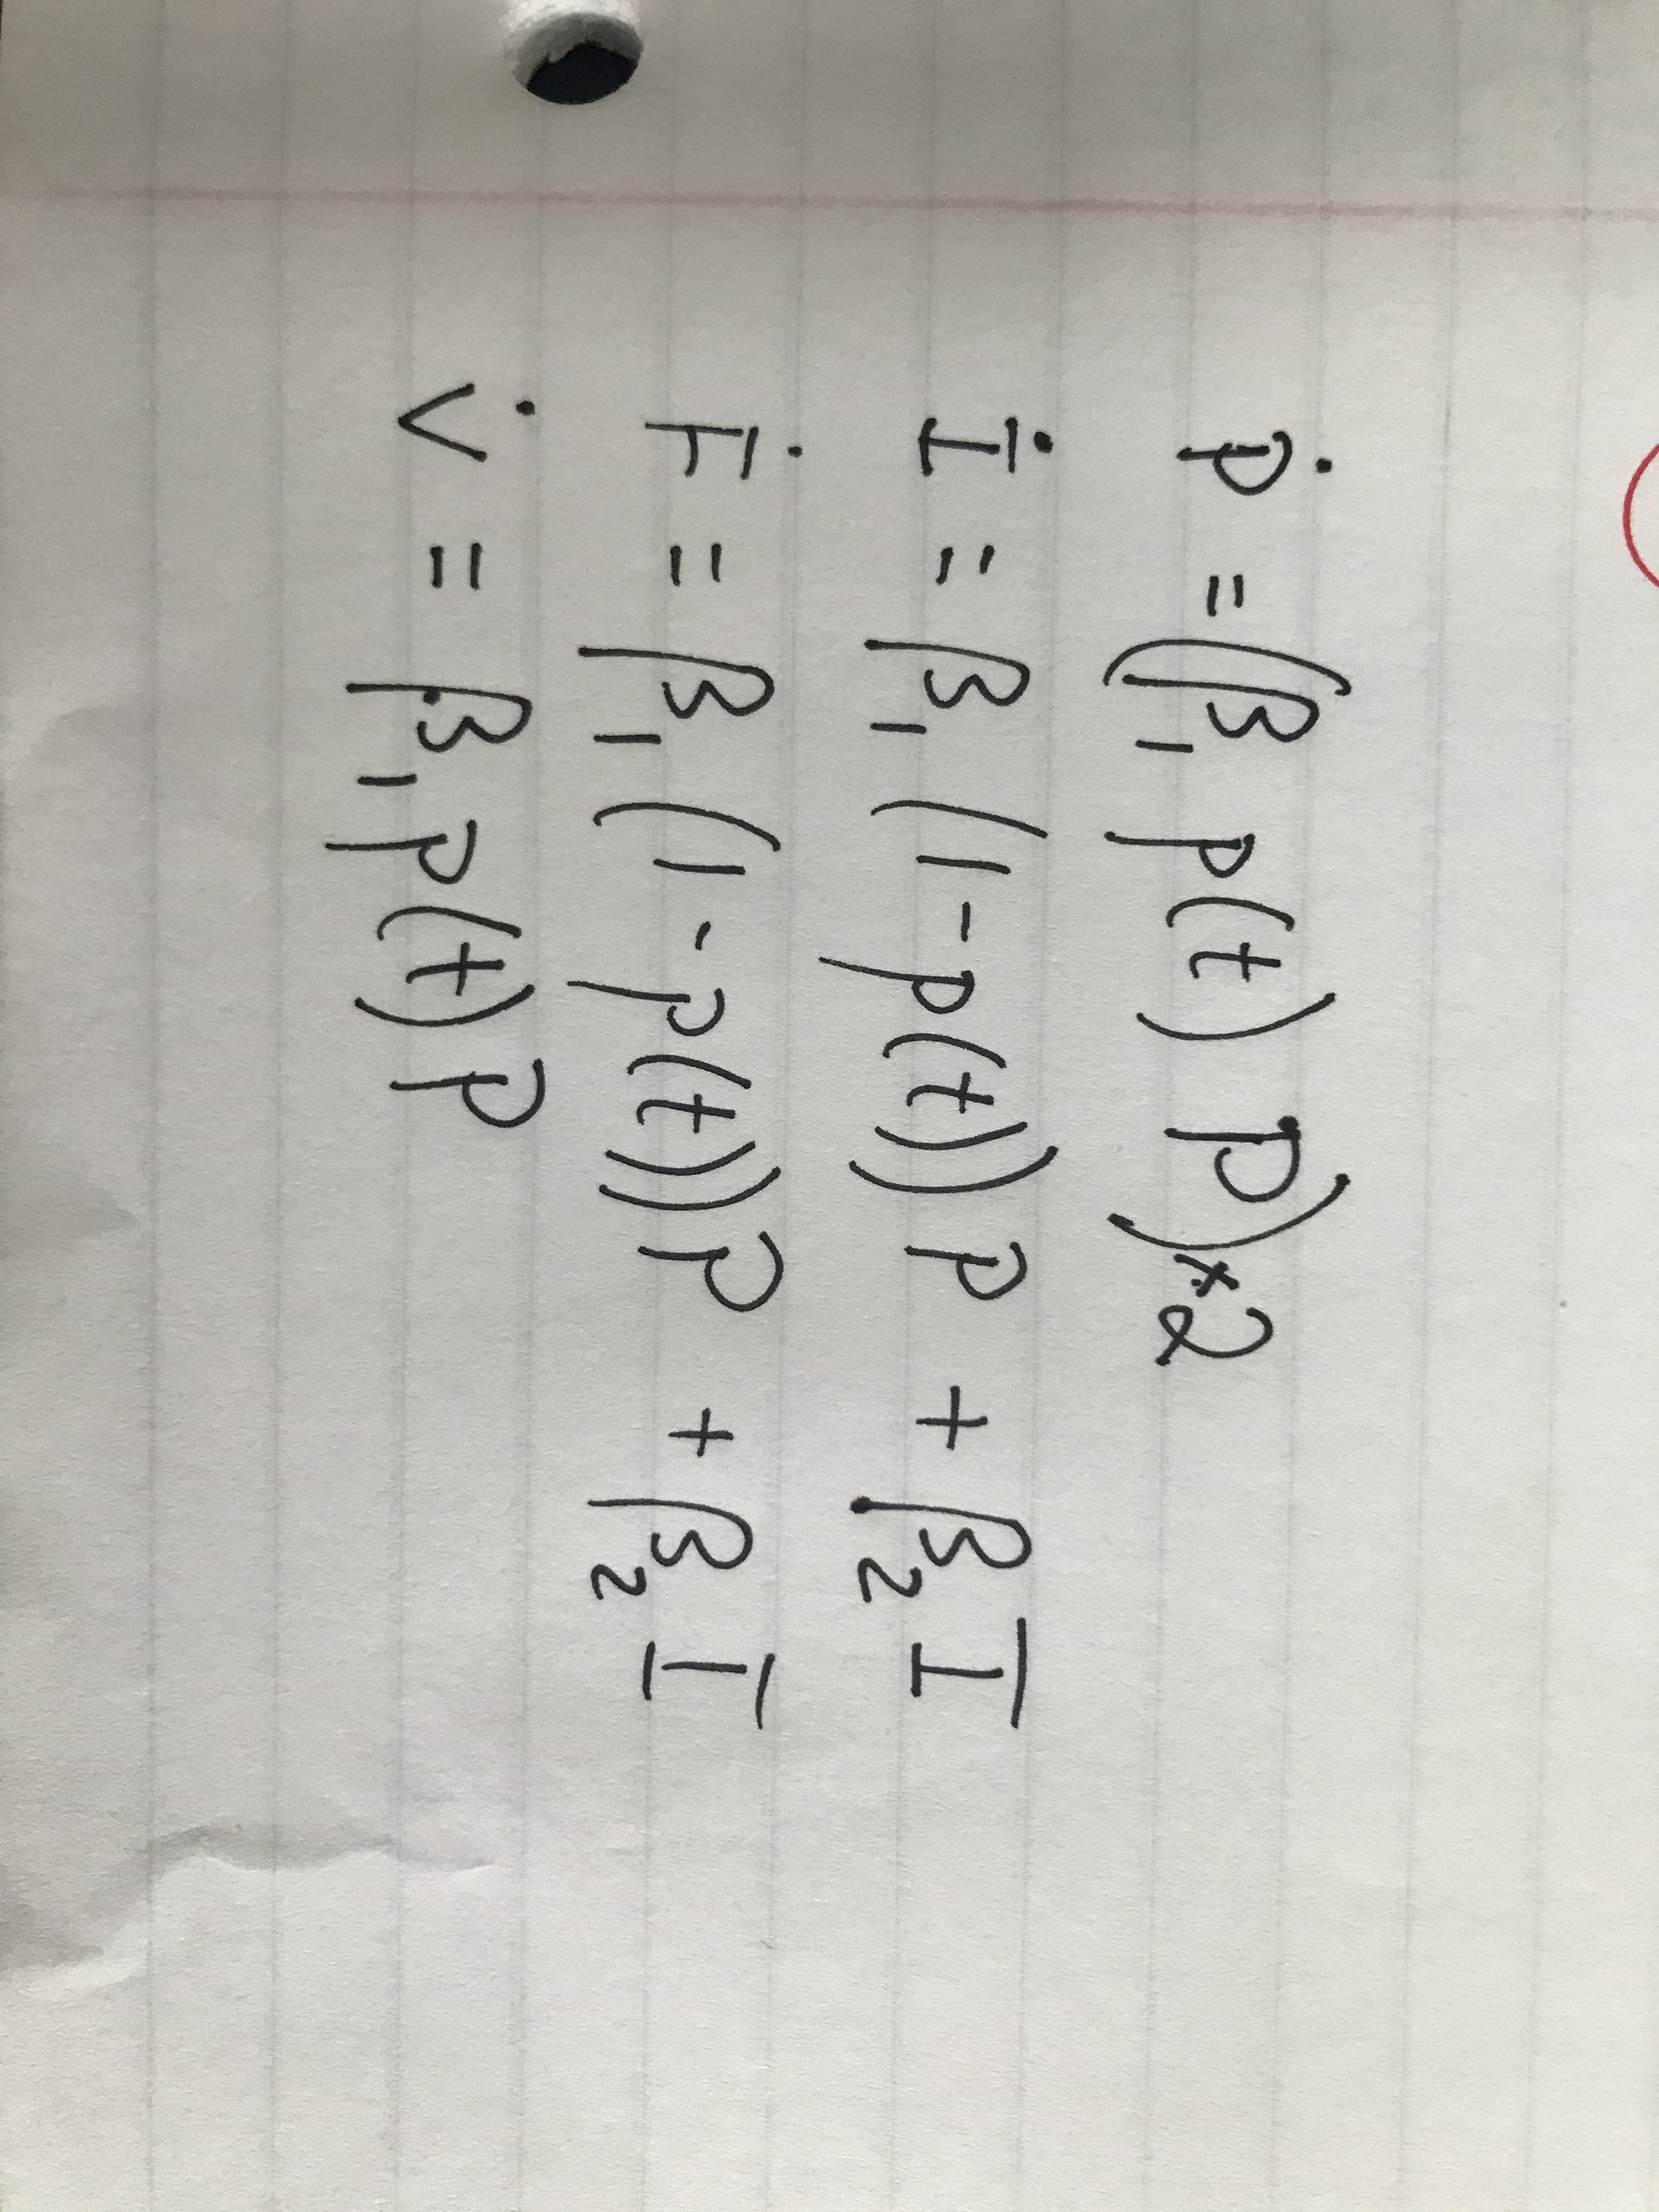 Ṗ = (β₁ p(t) P) × 2
İ = β₁ (1 - p(t)) P + β₂ I
Ḟ = β₁ (1 - p(t))) P + β₂ I
V̇ = β₁ p(t) P